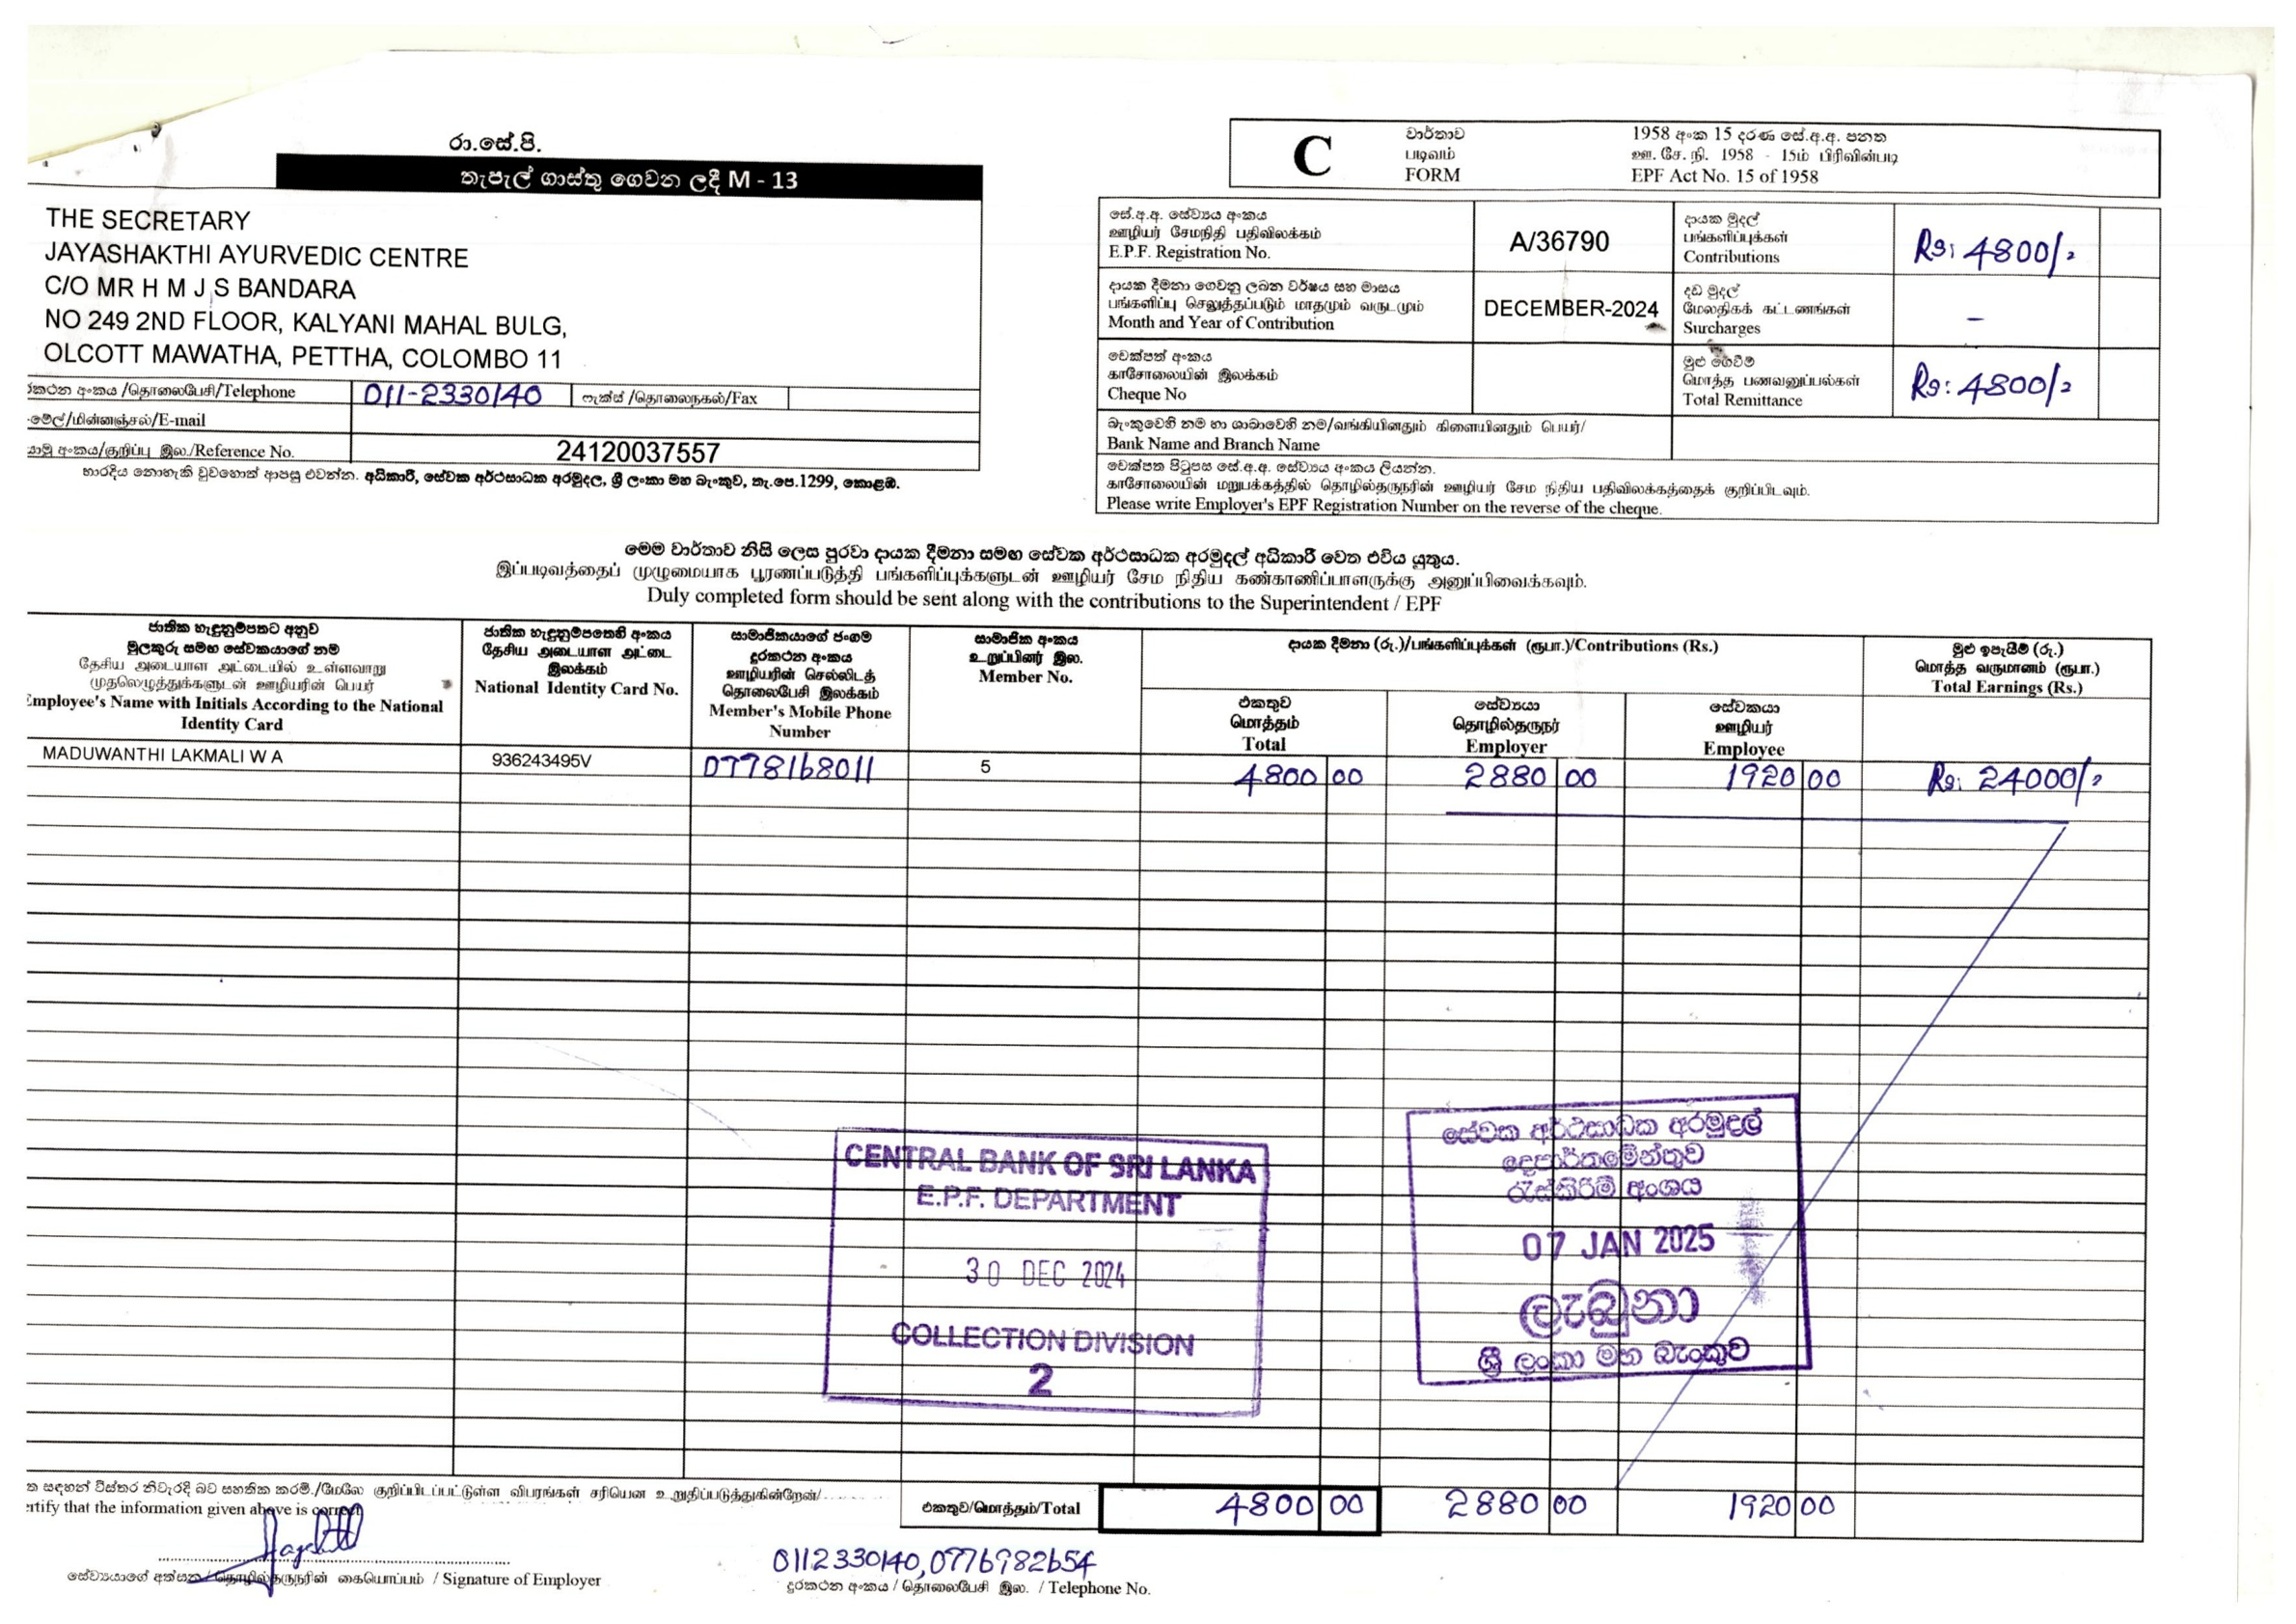 රා.සේ.පි.
තැපැල් ගාස්තු ගෙවන ලදී M - 13
THE SECRETARY
JAYASHAKTHI AYURVEDIC CENTRE
C/O MR H M J S BANDARA
NO 249 2ND FLOOR, KALYANI MAHAL BULG,
OLCOTT MAWATHA, PETTHA, COLOMBO 11
රකථන අංකය /தொலைபேசி/Telephone 011-2330140 ෆැක්ස් /தொலைநகல்/Fax
-මේල්/மின்னஞ்சல்/E-mail
යොමු අංකය/குறிப்பு இல./Reference No. 24120037557
භාරදිය නොහැකි වුවහොත් ආපසු එවන්න. අධිකාරී, සේවක අර්ථසාධක අරමුදල, ශ්‍රී ලංකා මහ බැංකුව, තැ.පෙ.1299, කොළඹ.
C
වාර්තාව
படிவம்
FORM
1958 අංක 15 දරණ සේ.අ.අ. පනත
ஊ. சே. நி. 1958 - 15ம் பிரிவின்படி
EPF Act No. 15 of 1958
සේ.අ.අ. සේව්‍යය අංකය
ஊழியர் சேமநிதி பதிவிலக்கம்
E.P.F. Registration No.
A/36790
දායක මුදල්
பங்களிப்புக்கள்
Contributions
Rs: 4800/-
දායක දීමනා ගෙවනු ලබන වර්ෂය සහ මාසය
பங்களிப்பு செலுத்தப்படும் மாதமும் வருடமும்
Month and Year of Contribution
DECEMBER-2024
දඩ මුදල්
மேலதிகக் கட்டணங்கள்
Surcharges
-
චෙක්පත් අංකය
காசோலையின் இலக்கம்
Cheque No
මුළු ගෙවීම්
மொத்த பணவனுப்பல்கள்
Total Remittance
Rs: 4800/-
බැංකුවෙහි නම හා ශාඛාවෙහි නම/வங்கியினதும் கிளையினதும் பெயர்/
Bank Name and Branch Name
චෙක්පත පිටුපස සේ.අ.අ. සේව්‍යය අංකය ලියන්න.
காசோலையின் மறுபக்கத்தில் தொழில்தருநரின் ஊழியர் சேம நிதிய பதிவிலக்கத்தைக் குறிப்பிடவும்.
Please write Employer's EPF Registration Number on the reverse of the cheque.
මෙම වාර්තාව නිසි ලෙස පුරවා දායක දීමනා සමඟ සේවක අර්ථසාධක අරමුදල් අධිකාරී වෙත එවිය යුතුය.
இப்படிவத்தைப் முழுமையாக பூரணப்படுத்தி பங்களிப்புக்களுடன் ஊழியர் சேம நிதிய கண்காணிப்பாளருக்கு அனுப்பிவைக்கவும்.
Duly completed form should be sent along with the contributions to the Superintendent / EPF
ජාතික හැඳුනුම්පතට අනුව
මුලකුරු සමඟ සේවකයාගේ නම
தேசிய அடையாள அட்டையில் உள்ளவாறு
முதலெழுத்துக்களுடன் ஊழியரின் பெயர்
Employee's Name with Initials According to the National
Identity Card
ජාතික හැඳුනුම්පතෙහි අංකය
தேசிய அடையாள அட்டை
இலக்கம்
National Identity Card No.
සාමාජිකයාගේ ජංගම
දුරකථන අංකය
ஊழியரின் செல்லிடத்
தொலைபேசி இலக்கம்
Member's Mobile Phone
Number
සාමාජික අංකය
உறுப்பினர் இல.
Member No.
දායක දීමනා (රු.)/பங்களிப்புக்கள் (ரூபா.)/Contributions (Rs.)
එකතුව
மொத்தம்
Total
සේව්‍යයා
தொழில்தருநர்
Employer
සේවකයා
ஊழியர்
Employee
මුළු ඉපැයීම් (රු.)
மொத்த வருமானம் (ரூபா.)
Total Earnings (Rs.)
MADUWANTHI LAKMALI W A 936243495V 0778168011 5 4800 00 2880 00 1920 00 Rs: 24000/-
CENTRAL BANK OF SRI LANKA
E.P.F. DEPARTMENT
30 DEC 2024
COLLECTION DIVISION
2
සේවක අර්ථසාධක අරමුදල්
දෙපාර්තමේන්තුව
රැස්කිරීම් අංශය
07 JAN 2025
ලැබුනා
ශ්‍රී ලංකා මහ බැංකුව
ත සඳහන් විස්තර නිවැරදි බව සහතික කරමි./மேலே குறிப்பிடப்பட்டுள்ள விபரங்கள் சரியென உறுதிப்படுத்துகின்றேன்/
rtify that the information given above is correct
එකතුව/மொத்தம்/Total 4800 00 2880 00 1920 00
සේව්‍යයාගේ අත්සන / தொழில்தருநரின் கையொப்பம் / Signature of Employer
0112330140, 0776982654
දුරකථන අංකය / தொலைபேசி இல. / Telephone No.